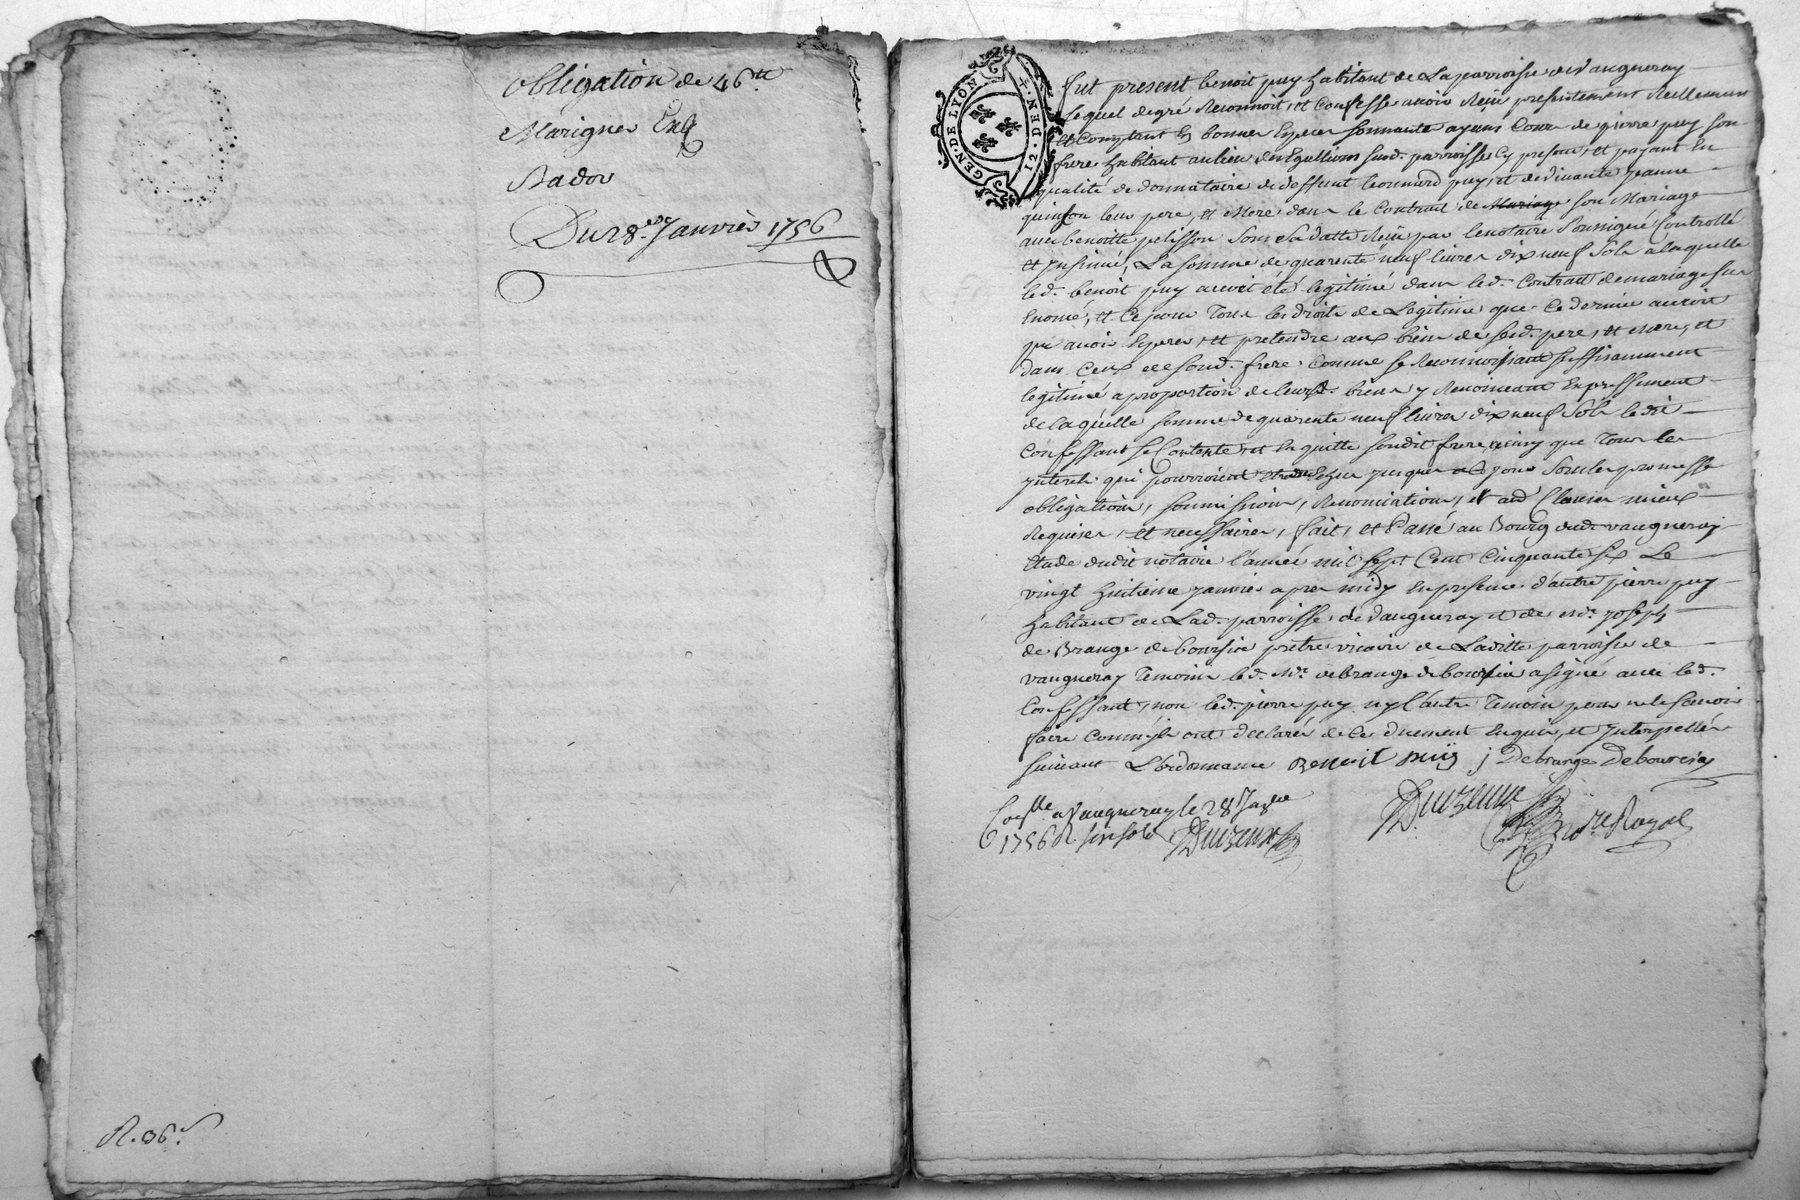 Obligation de 46tt
Marigner
Badou
Du 28e Janvier 1756
R. 36s
GEN. DE LYON
12. DEN.
fut present benoit puy habitant de La parroisse de Vaugneray
Lequel de gré Reconnoit, et Confesse avoir Reçu presentement Reellement
et Comptant En bonnes Especes sonnantes ayans Cours de pierre puy son
frere habitant au lieu des Egullions susd. parroisse Cy present, et payant En
qualité de donnataire de deffunt Leonnard puy, et de vivante jeanne
quinson leurs pere, et Mere dans le Contrat de Mariage son Mariage
avec benoitte pelisson sous Sa datte Reçu par le notaire Soussigné Controllé
et jnsinué, La somme de quarente neuf livres dix neuf Sols a laquelle
led. benoit puy avoit été legitimé dans led. Contrat de mariage sus
Enoncé, et Ce pour Tous les droits de Legitime que Ce dernier auroit
pû avoir Esperer, et pretendre aux biens de sesd. pere, et Mere, et
dans Ceux de sond. frere Comme se Reconnoissant suffisamment
legitimé a proportion de leursd. biens y Renonceant Expressement
de laquelle somme de quarente neuf livres dix neuf Sols le dit
Confessant se Contente, et En quitte sondit frere, ainsy que Tous les
jnterets qui pourroient jusques a Ce jour Sous les promesses
obligations, soumissions, Renonciations, et aud. Clauses mieux
Requises, et necessaires, fait, et Passé au Bourg dud. vaugneray
Etude dudit notaire l'année mil sept Cent Cinquante six Le
vingt huitieme janvier apres midy En presence d'autre pierre puy
habitant de Lad. parroisse de Vaugneray et de Mr. joseph
de Brange de boursia prêtre vicaire de Laditte parroisse de
vaugneray Temoins led. Mr. de brange de boursia a signé avec led.
Confessant, non led. pierre puy ny l'autre Temoin pour ne le sçavoir
faire Comme ils ont declarés de Ce duement Enquis, et jnterpellés
suivant L'ordonnance Benoit puis j Debrange Deboursia
Conlle a Vaugneray le 28 Janvier
1756 R six sols
Nore Royal